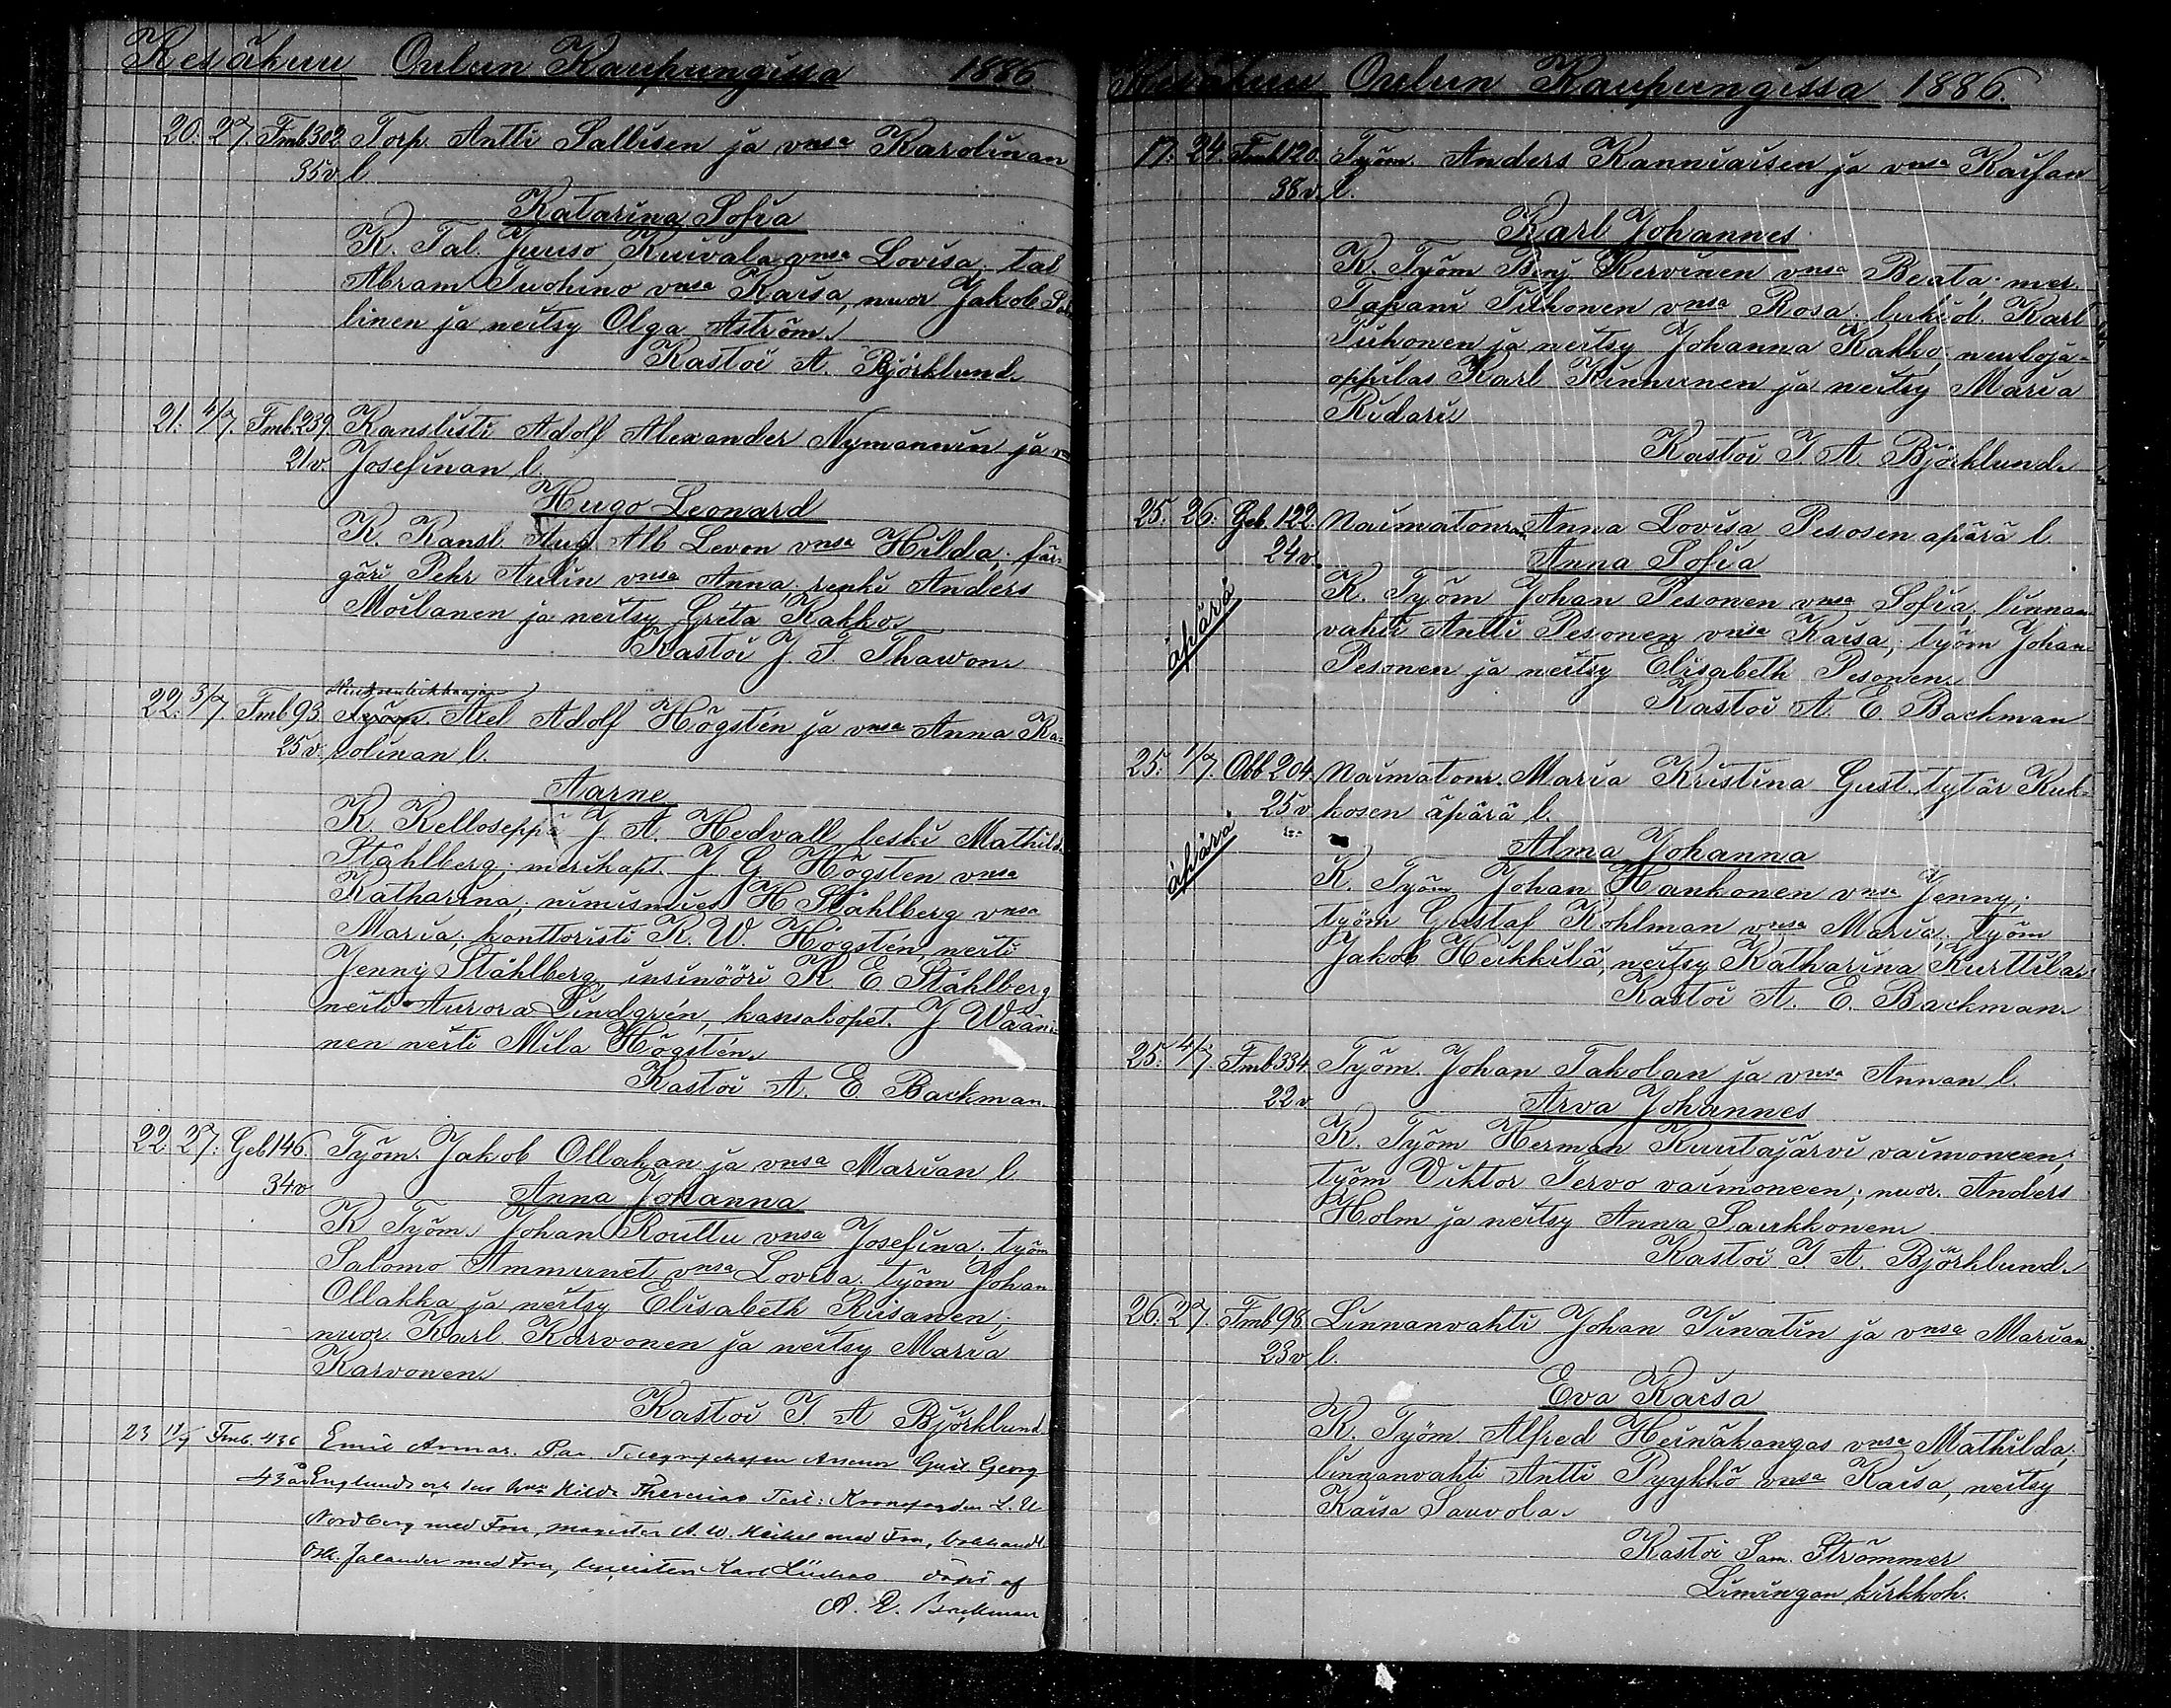 Kesäkuu Oulun Kaupungissa 1886.
20. 27. Fmb302. Torp. Antti Sallisen ja vmsa Karolinan
35v l.
Katarina Sofia
K. Tal. Juuso Kuivala vmsa Lovisa; tal
Abram Tuohino vmsa Kaisa, nuor Jakob Sal
linen ja neitsy Olga Aström.
Kastoi A. Björklund.
21. 4/7. Fmb.239. Kanslisti Adolf Alexander Nymannin ja v
21v. Josefinan l.
Hugo Leonard
K. Kansl. Aug. Alb Leven vmsa Hilda; fär-
gäri Pehr Aulin vmsa Anna; renki Anders
Moilanen ja neitsy Greta Kakko.
Kastoi J. F. Thawon.
22. 3/7 Fmb93. Työm. Axel Adolf Högstén ja vmsa Anna Ka-
25v. rolinan l.
Aarne
K. Kelloseppä J. A. Hedvall leski Mathilda
Ståhlberg; merikapt. J. G. Högsten vmsa
Katharina; nimismies H Ståhlberg vmsa
Maria; konttoristi K. W. Högstén, neiti
Jenny Ståhlberg insinööri K E Ståhlberg
neiti Aurora Lindgrén, kansakopet. J Wääni-
nen neiti Mila Högstén.
Kastoi A. E. Backman.
22. 27. Geb146. Työm. Jakob Ollakan ja vmsa Marian l.
34v
Anna Johanna
K Työm. Johan Routtu vmsa Josefina; työm
Salomo Ammunet vmsa Lovisa. työm Johan
Ollakka ja neitsy Elisabeth Riisanen;
nuor Karl Karvonen ja neitsy Maria
Karvonen.
Kastoi J. A Björklund
23 11/7 Fmb. 436 Emil Armas. Gust Georg
43 år Englund Hilda Theresias Test: L. U
Nordberg med Fru, magister A. W. med Fru, bokhandl
Osk. Jalander med Fru, Karl döpt af
A. E. Backman
Kesäkuu Oulun Kaupungissa 1886.
17. 24. Fmb120. Työm. Anders Kanniaisen ja vmsa Kaisan
38v. l.
Karl Johannes
K. Työm Benj. Kervinen vmsa Beata; mer.
Tapani Tuhonen vmsa Rosa; lukiol. Karl
Tuhonen ja neitsy Johanna Kakko; newloja-
oppilas Karl Kinnunen ja neitsy Maria
Ridari
Kastoi J. A. Björklund.
25. 26. Geb. 122. Naimatoman Anna Lovisa Pesosen äpärä l.
24v.
Anna Sofia
äpärä
K. Työm Johan Pesonen vmsa Sofia; linnan
vahti Antti Pesonen vmsa Kaisa; työm Johan
Pesonen ja neitsy Elisabeth Pesonen.
Kastoi A. E. Backman
25. 1/7. Obb204. Naimatom. Maria Kristina Gust. tytär Kuk-
25v kosen äpärä l.
Alma Johanna
äpärä
K. Työm Johan Hankonen vmsa Jenny;
työm Gustaf Kohlman vmsa Maria; työm
Jakob Heikkilä, neitsy Katharina Kurttila.
Kastoi A. E. Backman.
25. 4/7. Fmb334. Työm. Johan Takolan ja vmsa Annan l.
22v
Arva Johannes
K. Työm Herman Kuutajärvi vaimoneen;
työm Viktor Tervo vaimoneen; nuor. Anders
Holm ja neitsy Anna Saukkonen.
Kastoi J. A. Björklund.
26. 27. Fmb98. Linnanvahti Johan Tinatin ja vmsa Marian
23v l.
Eva Kaisa
K. Työm. Alfred Heinäkangas vmsa Mathilda;
linnanvahti Antti Pyykkö vmsa Kaisa, neitsy
Kaisa Sauvola.
Kastoi Sam. Strömmer
Limingan kirkkoh.